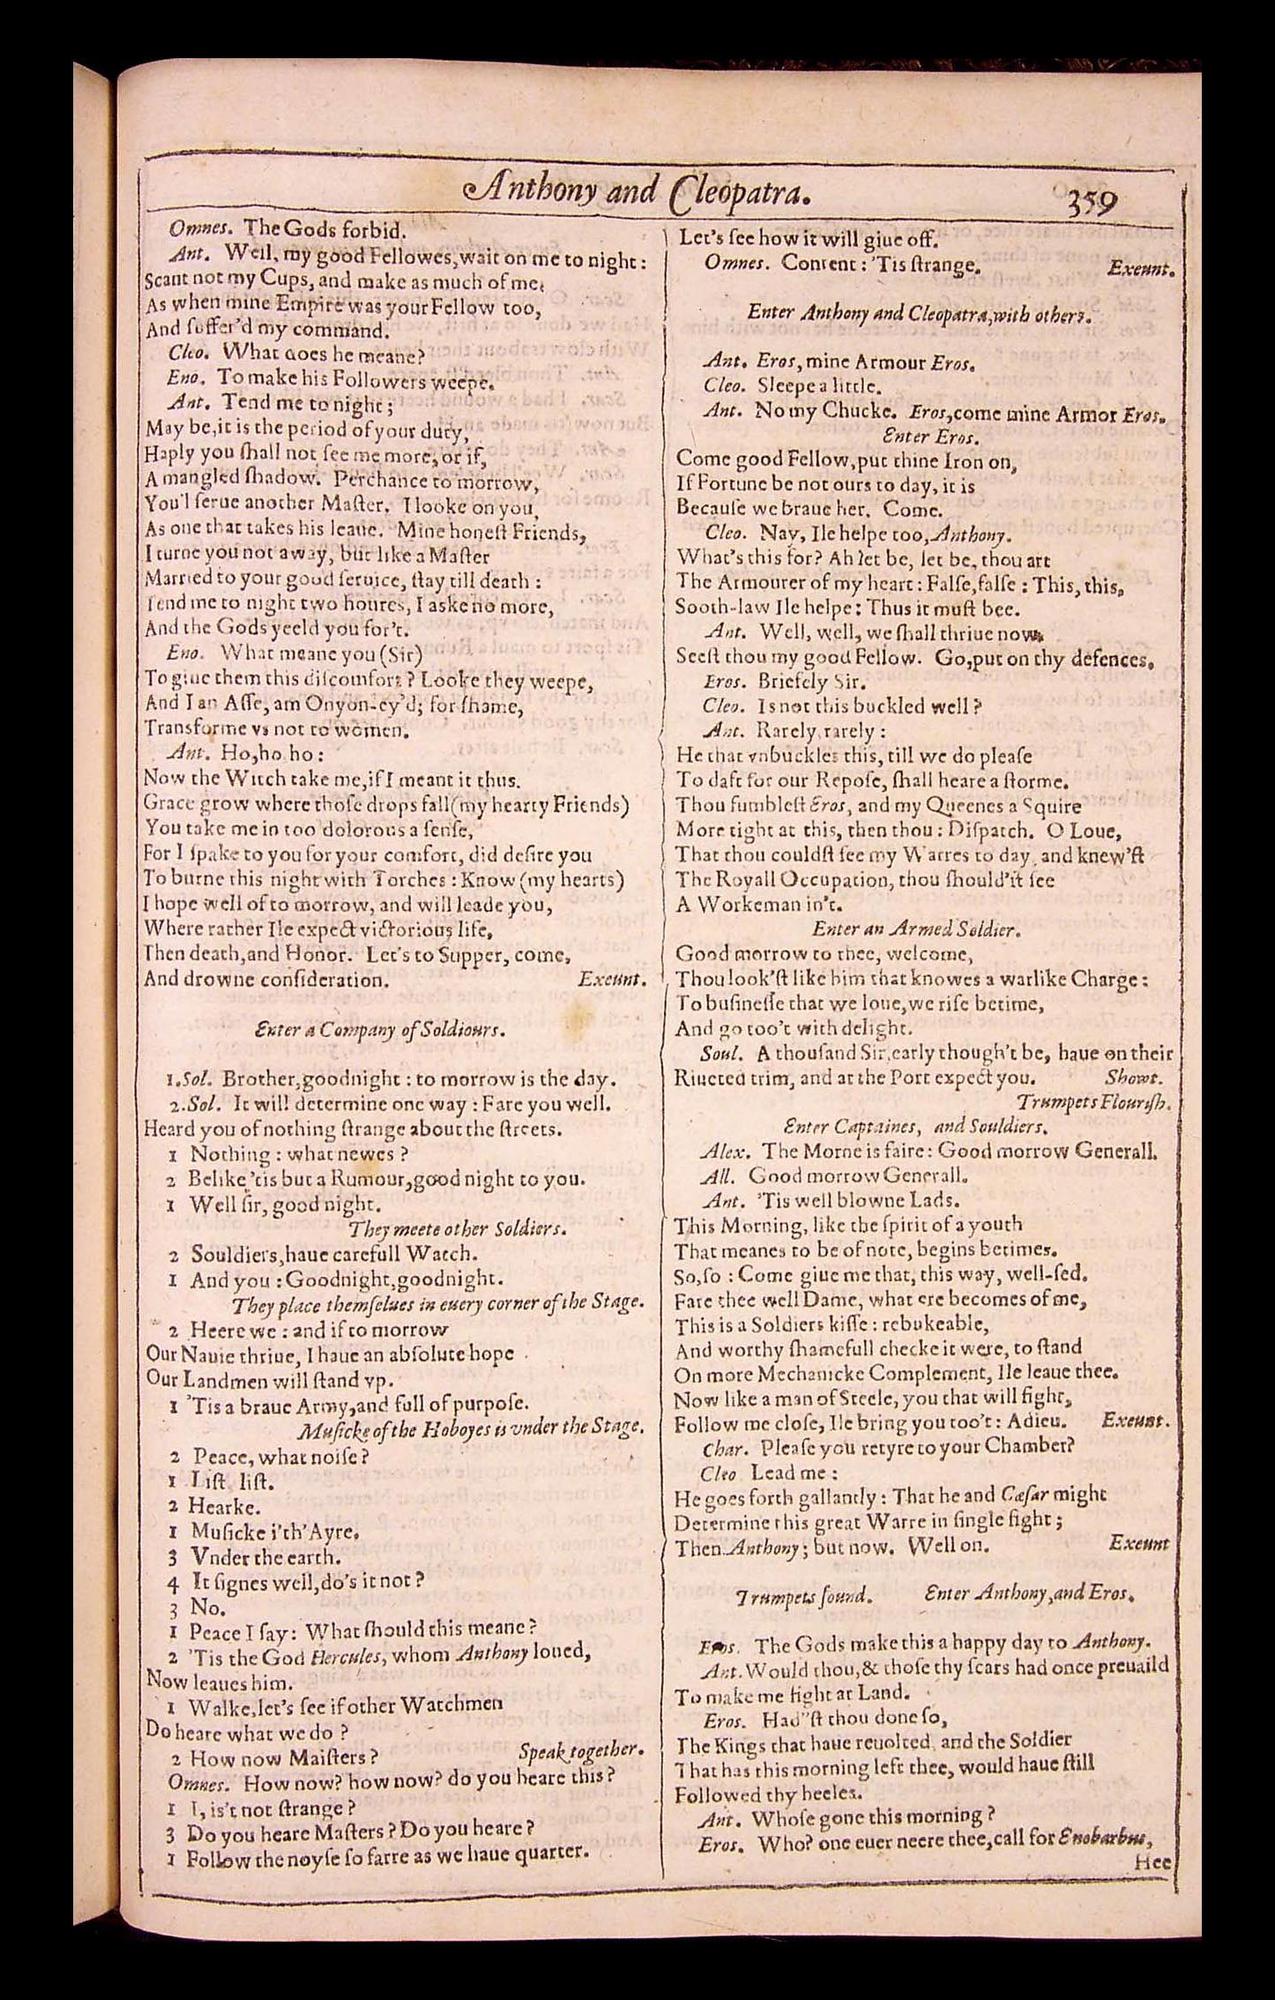 Anthony and Cleopatra. 359
Omnes. The Gods forbid.
Ant. Well, my good Fellowes, wait on me to night:
Scant not my Cups, and make as much of me,
As when mine Empire was your Fellow too,
And ſuffer'd my command.
Cleo. What does he meane?
Eno. To make his Followers weepe.
Ant. Tend me to night;
May be, it is the period of your duty,
Haply you ſhall not ſee me more, or if,
A mangled ſhadow. Perchance to morrow,
You'l ſerue another Maſter. I looke on you,
As one that takes his leaue. Mine honeſt Friends,
I turne you not away, but like a Maſter
Married to your good ſeruice, ſtay till death:
Tend me to night two houres, I aske no more,
And the Gods yeeld you for't.
Eno. What meane you (Sir)
To giue them this diſcomfort? Looke they weepe,
And I an Aſſe, am Onyon-ey'd; for ſhame,
Transforme vs not to women.
Ant. Ho, ho ho:
Now the Witch take me, if I meant it thus.
Grace grow where thoſe drops fall (my hearty Friends)
You take me in too dolorous a ſenſe,
For I ſpake to you for your comfort, did deſire you
To burne this night with Torches: Know (my hearts)
I hope well of to morrow, and will leade you,
Where rather Ile expect victorious life,
Then death, and Honor. Let's to Supper, come,
And drowne conſideration. Exeunt.
Enter a Company of Soldiours.
1.Sol. Brother, goodnight: to morrow is the day.
2.Sol. It will determine one way: Fare you well.
Heard you of nothing ſtrange about the ſtreets.
1 Nothing: what newes?
2 Belike 'tis but a Rumour, good night to you.
1 Well ſir, good night.
They meete other Soldiers.
2 Souldiers, haue carefull Watch.
1 And you: Goodnight, goodnight.
They place themſelues in euery corner of the Stage.
2 Heere we: and if to morrow
Our Nauie thriue, I haue an abſolute hope
Our Landmen will ſtand vp.
1 'Tis a braue Army, and full of purpoſe.
Muſicke of the Hoboyes is vnder the Stage.
2 Peace, what noiſe?
1 Liſt liſt.
2 Hearke.
1 Muſicke i'th'Ayre.
3 Vnder the earth.
4 It ſignes well, do's it not?
3 No.
1 Peace I ſay: What ſhould this meane?
2 'Tis the God Hercules, whom Anthony loued,
Now leaues him.
1 Walke, let's ſee if other Watchmen
Do heare what we do?
2 How now Maiſters? Speak together.
Omnes. How now? how now? do you heare this?
1 I, is't not ſtrange?
3 Do you heare Maſters? Do you heare?
1 Follow the noyſe ſo farre as we haue quarter.
Let's ſee how it will giue off.
Omnes. Content: 'Tis ſtrange. Exeunt.
Enter Anthony and Cleopatra, with others.
Ant. Eros, mine Armour Eros.
Cleo. Sleepe a little.
Ant. No my Chucke. Eros, come mine Armor Eros.
Enter Eros.
Come good Fellow, put thine Iron on,
If Fortune be not ours to day, it is
Becauſe we braue her. Come.
Cleo. Nay, Ile helpe too, Anthony.
What's this for? Ah let be, let be, thou art
The Armourer of my heart: Falſe, falſe: This, this,
Sooth-law Ile helpe: Thus it muſt bee.
Ant. Well, well, we ſhall thriue now.
Seeſt thou my good Fellow. Go, put on thy defences.
Eros. Briefely Sir.
Cleo. Is not this buckled well?
Ant. Rarely, rarely:
He that vnbuckles this, till we do pleaſe
To daft for our Repoſe, ſhall heare a ſtorme.
Thou fumbleſt Eros, and my Queenes a Squire
More tight at this, then thou: Diſpatch. O Loue,
That thou couldſt ſee my Warres to day, and knew'ſt
The Royall Occupation, thou ſhould'ſt ſee
A Workeman in't.
Enter an Armed Soldier.
Good morrow to thee, welcome,
Thou look'ſt like him that knowes a warlike Charge:
To buſineſſe that we loue, we riſe betime,
And go too't with delight.
Soul. A thouſand Sir, early though't be, haue on their
Riueted trim, and at the Port expect you. Showt.
Trumpets Flouriſh.
Enter Captaines, and Souldiers.
Alex. The Morne is faire: Good morrow Generall.
All. Good morrow Generall.
Ant. 'Tis well blowne Lads.
This Morning, like the ſpirit of a youth
That meanes to be of note, begins betimes.
So, ſo: Come giue me that, this way, well-ſed.
Fare thee well Dame, what ere becomes of me,
This is a Soldiers kiſſe: rebukeable,
And worthy ſhamefull checke it were, to ſtand
On more Mechanicke Complement, Ile leaue thee.
Now like a man of Steele, you that will fight,
Follow me cloſe, Ile bring you too't: Adieu. Exeunt.
Char. Pleaſe you retyre to your Chamber?
Cleo Lead me:
He goes forth gallantly: That he and Cæſar might
Determine this great Warre in ſingle fight;
Then Anthony; but now. Well on. Exeunt
Trumpets ſound. Enter Anthony, and Eros.
Eros. The Gods make this a happy day to Anthony.
Ant. Would thou, & thoſe thy ſcars had once preuaild
To make me fight at Land.
Eros. Had'ſt thou done ſo,
The Kings that haue reuolted, and the Soldier
That has this morning left thee, would haue ſtill
Followed thy heeles.
Ant. Whoſe gone this morning?
Eros. Who? one euer neere thee, call for Enobarbus,
Hee